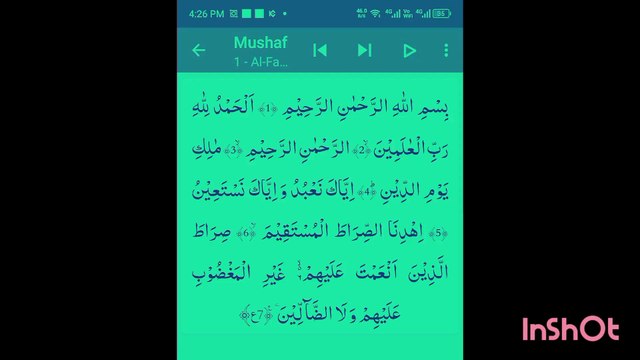 4:26 PM
46.0 K/s 4G Vo WiFi 4G
Mushaf
1 - Al-Fa...
بِسْمِ اللّٰهِ الرَّحْمٰنِ الرَّحِيْمِ ﴿1﴾ اَلْحَمْدُ لِلّٰهِ
رَبِّ الْعٰلَمِيْنَ ﴿2﴾ۙ الرَّحْمٰنِ الرَّحِيْمِ ﴿3﴾ۙ مٰلِكِ
يَوْمِ الدِّيْنِ ﴿4﴾ؕ اِيَّاكَ نَعْبُدُ وَ اِيَّاكَ نَسْتَعِيْنُ
﴿5﴾ؕ اِهْدِنَا الصِّرَاطَ الْمُسْتَقِيْمَ ﴿6﴾ۙ صِرَاطَ
الَّذِيْنَ اَنْعَمْتَ عَلَيْهِمْ ۙ۬ غَيْرِ الْمَغْضُوْبِ
عَلَيْهِمْ وَ لَا الضَّآلِّيْنَ ﴿7﴾ع
InShOt